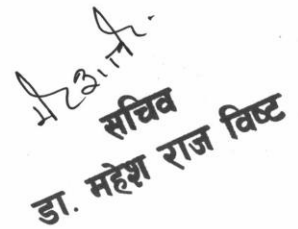 सचिव
डा. महेश राज विष्ट